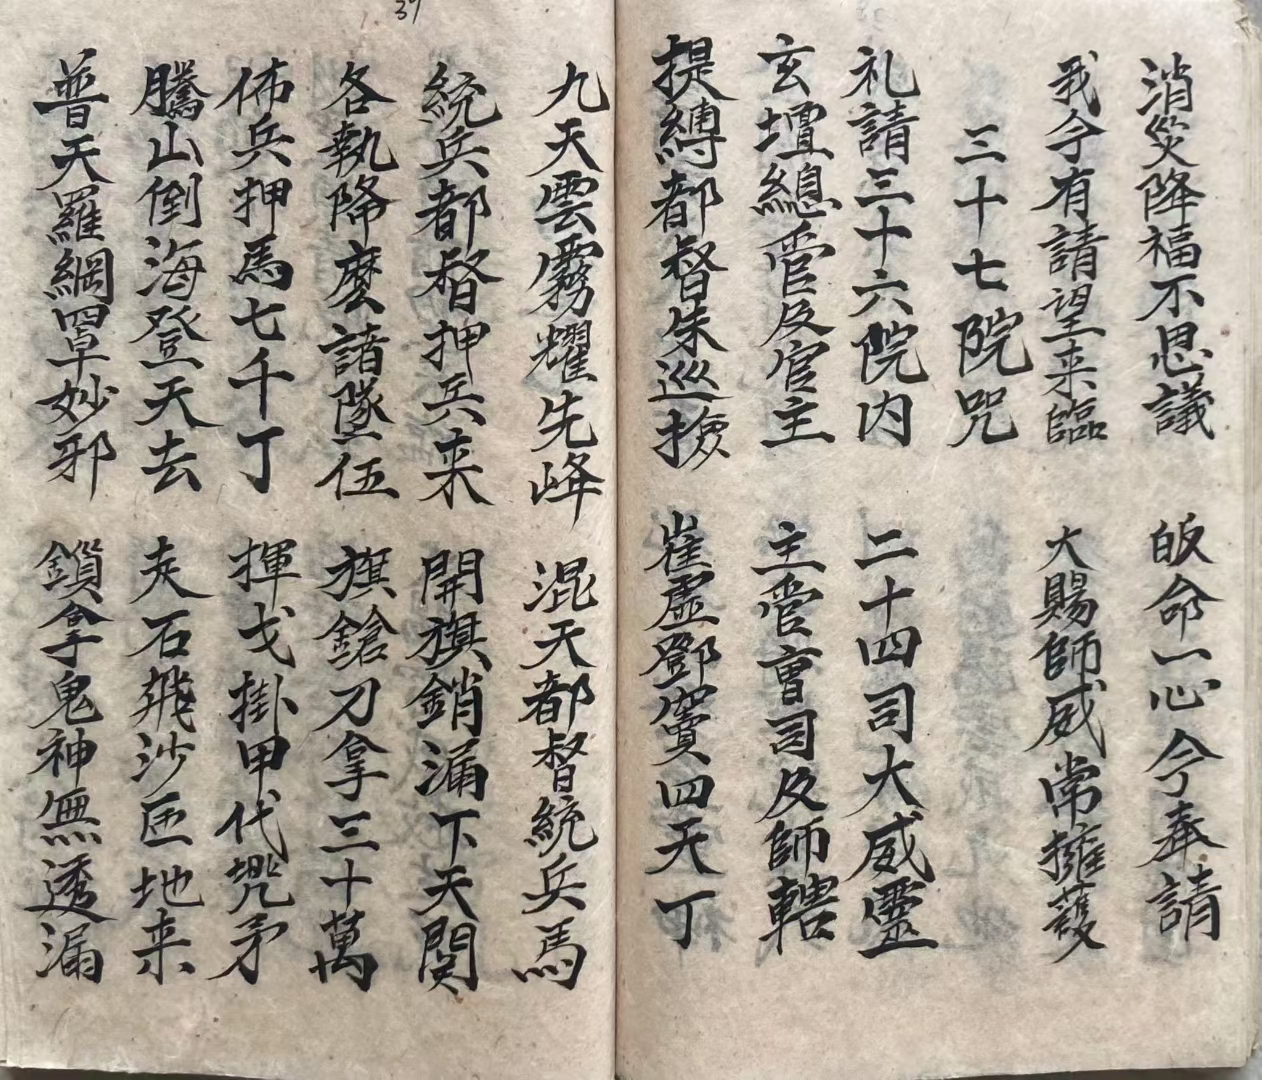 消災降福不思議 皈命一心今奉請
我今有請望来臨 大賜師威常擁護
三十七院咒
礼請三十六院内 二十四司大威靈
玄壇總管及官主 主管曹司及師轄
提縛都督朱巡撿 崔盧鄧竇四天丁
九天雲霧耀先峰 混天都督統兵馬
統兵都督押兵来 開旗銷漏下天関
各執降麼諸隊伍 旗鎗刀拿三十萬
佈兵押馬七千丁 揮戈掛甲代兜矛
騰山倒海登天去 走石飛沙匝地来
普天羅網罩妙邪 鎖拿鬼神無透漏
39